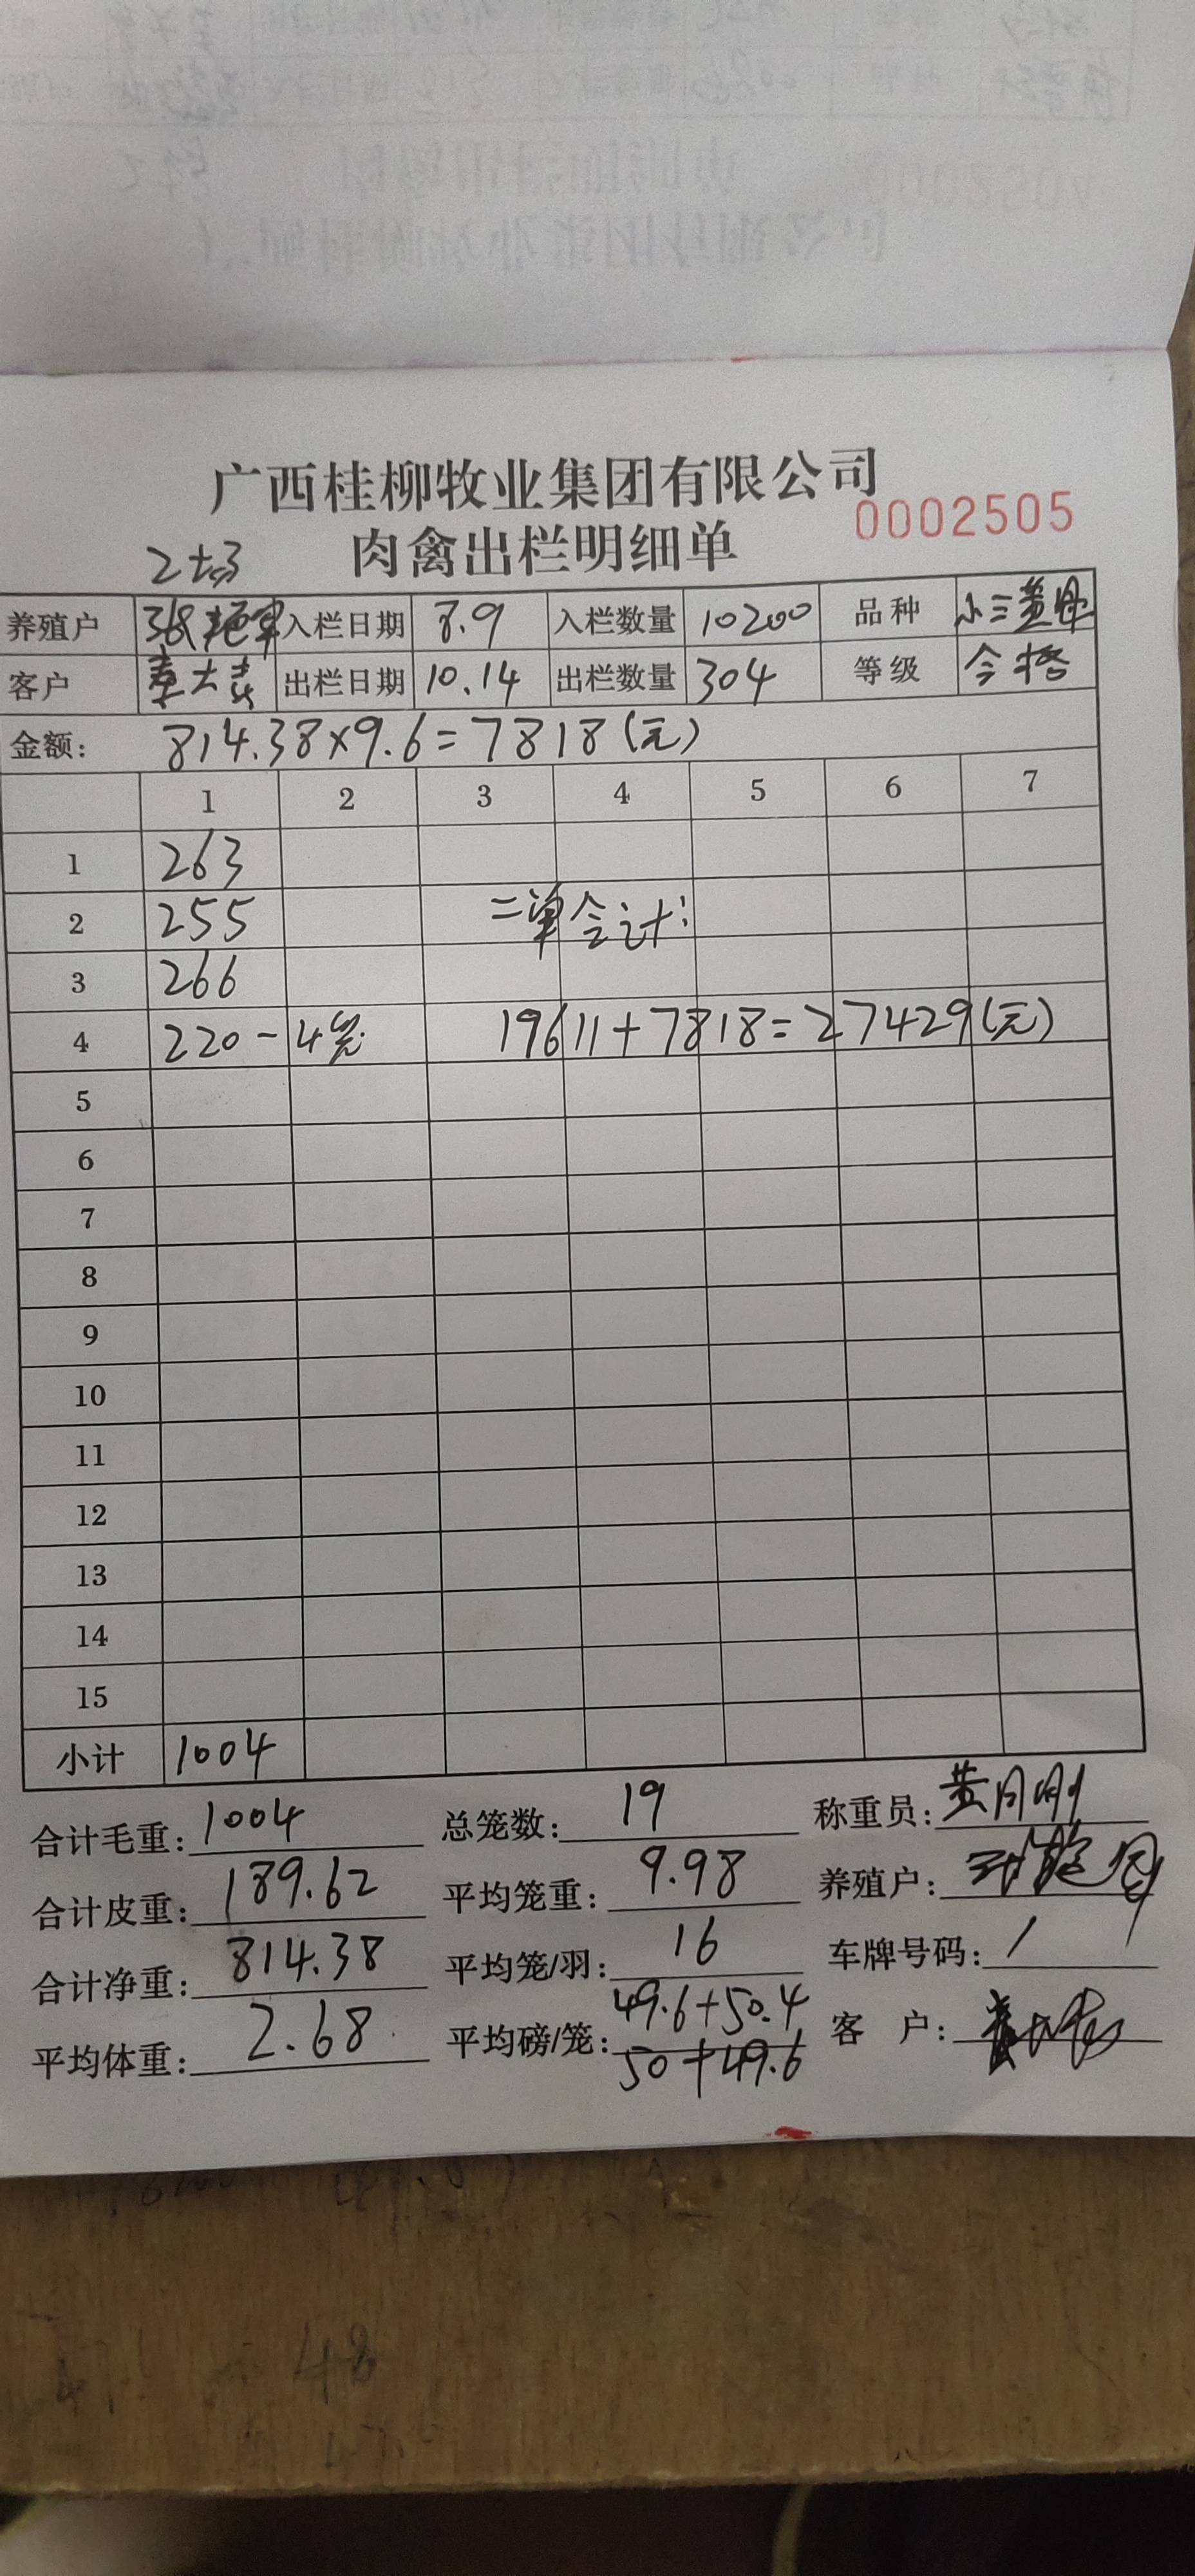 广西桂柳牧业集团有限公司
肉禽出栏明细单 0002505
养殖户 入栏日期 8.9 入栏数量 10200 品种 小三黄
客户 出栏日期 10.14 出栏数量 304 等级 合格
金额: 814.38×9.6=7818(元)
1 2 3 4 5 6 7
1 263
2 255 二单合计:
3 266
4 220-4笼 19611+7818=27429(元)
5
6
7
8
9
10
11
12
13
14
15
小计 1004
合计毛重: 1004 总笼数: 19 称重员: 黄月刚
合计皮重: 189.62 平均笼重: 9.98 养殖户:
合计净重: 814.38 平均笼/羽: 16 车牌号码: /
平均体重: 2.68 平均磅/笼: 49.6+50.4 客 户:
50+49.6